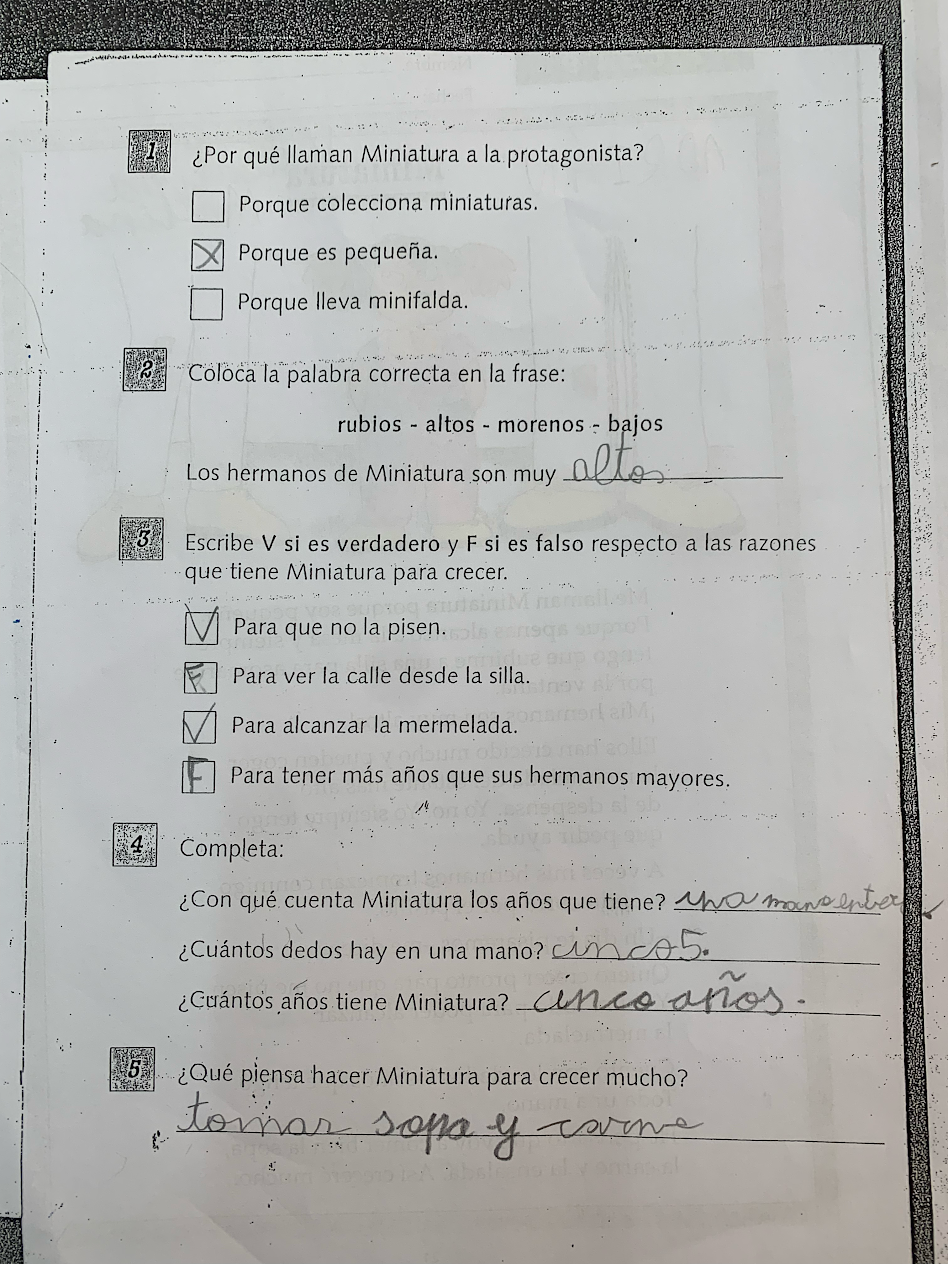 1 ¿Por qué llaman Miniatura a la protagonista?
Porque colecciona miniaturas.
X Porque es pequeña.
Porque lleva minifalda.
2 Coloca la palabra correcta en la frase:
rubios - altos - morenos - bajos
Los hermanos de Miniatura son muy altos
3 Escribe V si es verdadero y F si es falso respecto a las razones
que tiene Miniatura para crecer.
V Para que no la pisen.
F Para ver la calle desde la silla.
V Para alcanzar la mermelada.
F Para tener más años que sus hermanos mayores.
4 Completa:
¿Con qué cuenta Miniatura los años que tiene? una mano enter
¿Cuántos dedos hay en una mano? cinco 5.
¿Cuántos años tiene Miniatura? cinco años.
5 ¿Qué piensa hacer Miniatura para crecer mucho?
tomar sopa y carne